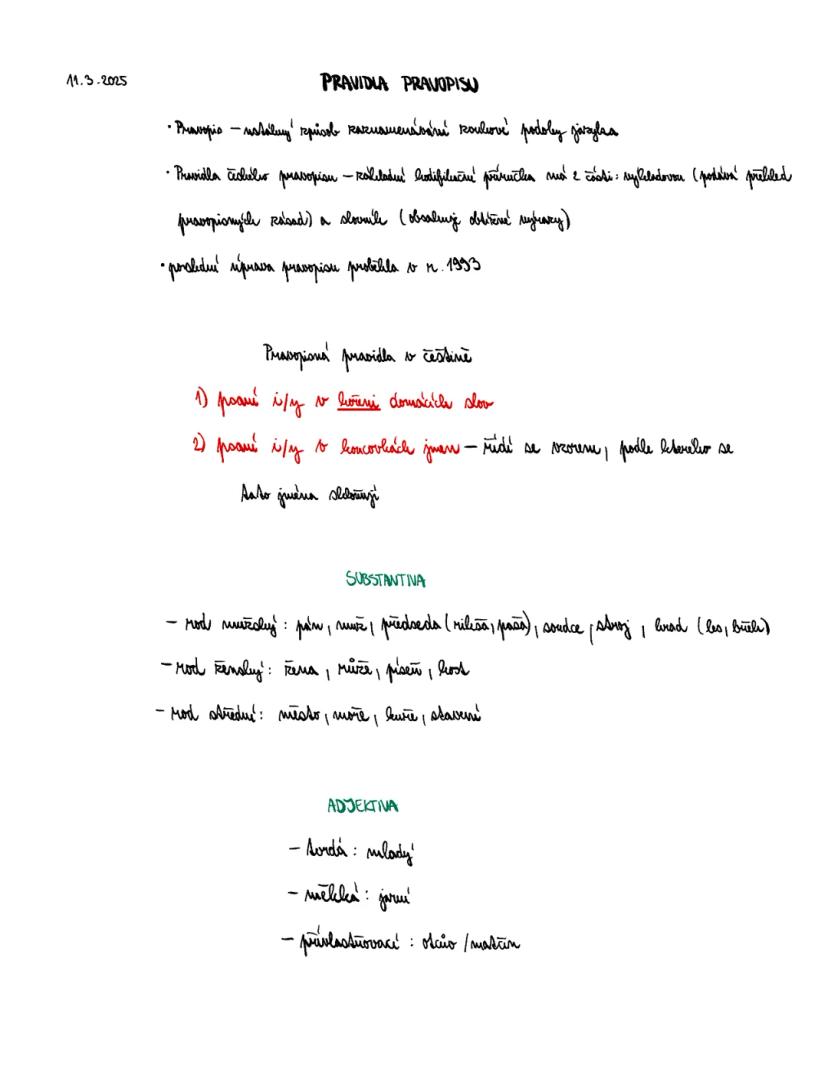 11.3.2025
PRAVIDLA PRAVOPISU
• Pravopis – ustálený způsob zaznamenávání zvukové podoby jazyka
• Pravidla českého pravopisu – základní kodifikační příručka má 2 části: výkladovou (podává přehled
pravopisných zásad) a slovník (obsahuje obtížné výrazy)
• poslední úprava pravopisu proběhla v r. 1993
Pravopisná pravidla v češtině
1) psaní i/y v kořeni domácích slov
2) psaní i/y v koncovkách jmen – řídí se vzorem, podle kterého se
tato jména skloňují
SUBSTANTIVA
– rod mužský: pán, muž, předseda (rikša, paša), soudce, stroj, hrad (les, buk)
– rod ženský: žena, růže, píseň, kost
– rod střední: město, moře, kuře, stavení
ADJEKTIVA
– tvrdá: mladý
– měkká: jarní
– přivlastňovací: otcův / matčin